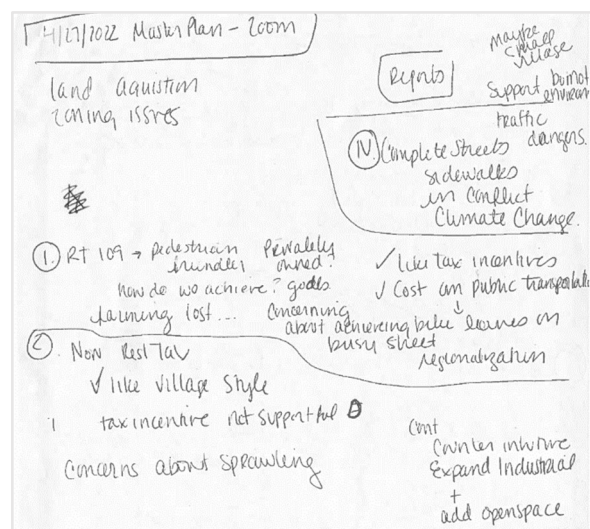 4/27/2022 Master Plan - Zoom
land aquistion
zoning issues
Reports
maybe
small
village
Support but not
environ
traffic
dangers.
IV. Complete Streets
sidewalks
in conflict
Climate Change.
1. RT 109 → pedestrian friendly
Privately owned?
how do we achieve? goals
farming lost...
Concerning
about achieving bike leaves on
busy street
✓ like tax incentives
✓ Cost on public transportati
↓
regionalization
2. Non Resi Tax
✓ like village style
tax incentive not supportful
Concerns about sprawling
Cont
Counter intuitive
Expand Industrial
+
add openspace